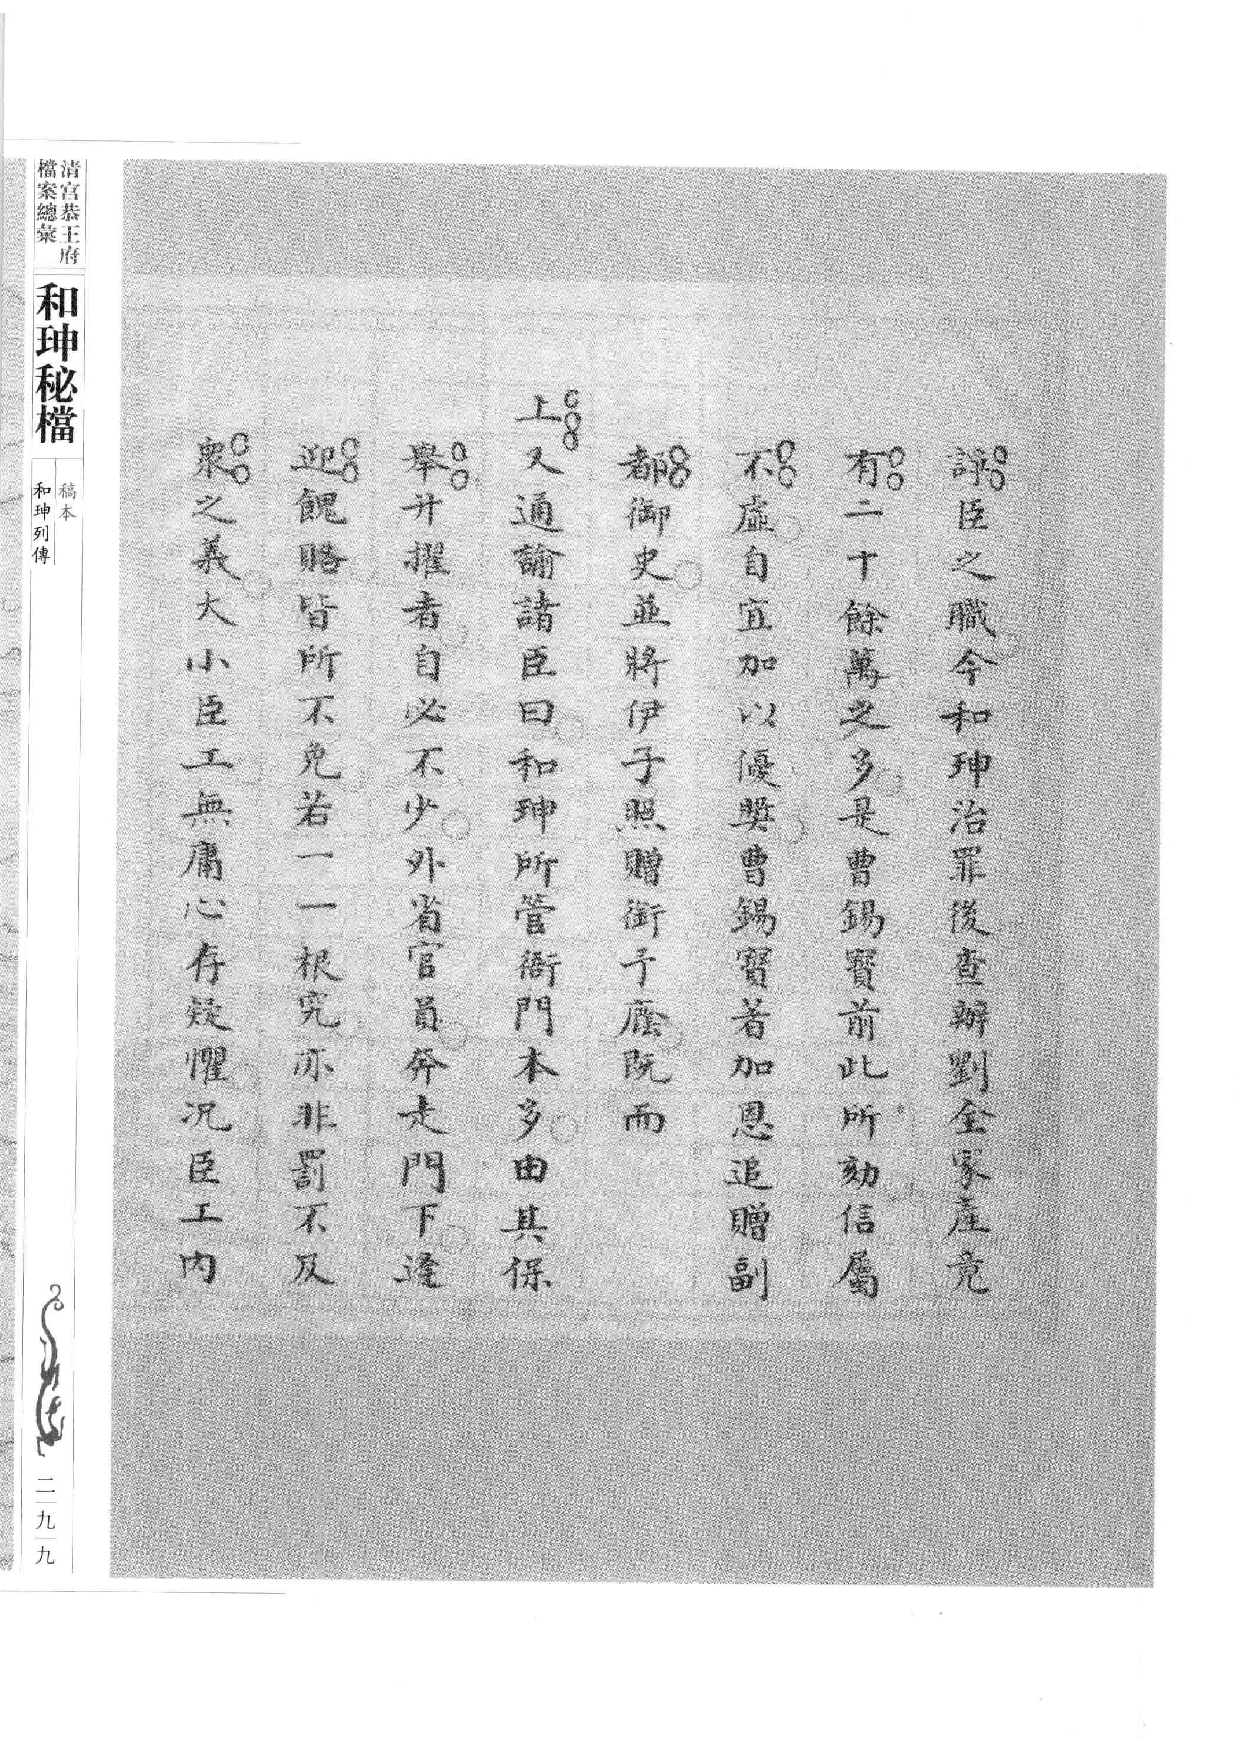 諍臣之職今和珅治罪後查辦劉全家產竟
有二十餘萬之多是曹錫寶前此所劾信屬
不虛自宜加以優獎曹錫寶著加恩追贈副
都御史並將伊子照贈銜予廕既而
上又通諭諸臣曰和珅所管衙門本多由其保
舉升擢者自必不少外省官員奔走門下逢
迎餽賂皆所不免若一一根究亦非罰不及
衆之義大小臣工無庸心存疑懼況臣工內
清宮恭王府
檔案總彙
和珅秘檔
稿本
和珅列傳
二九九